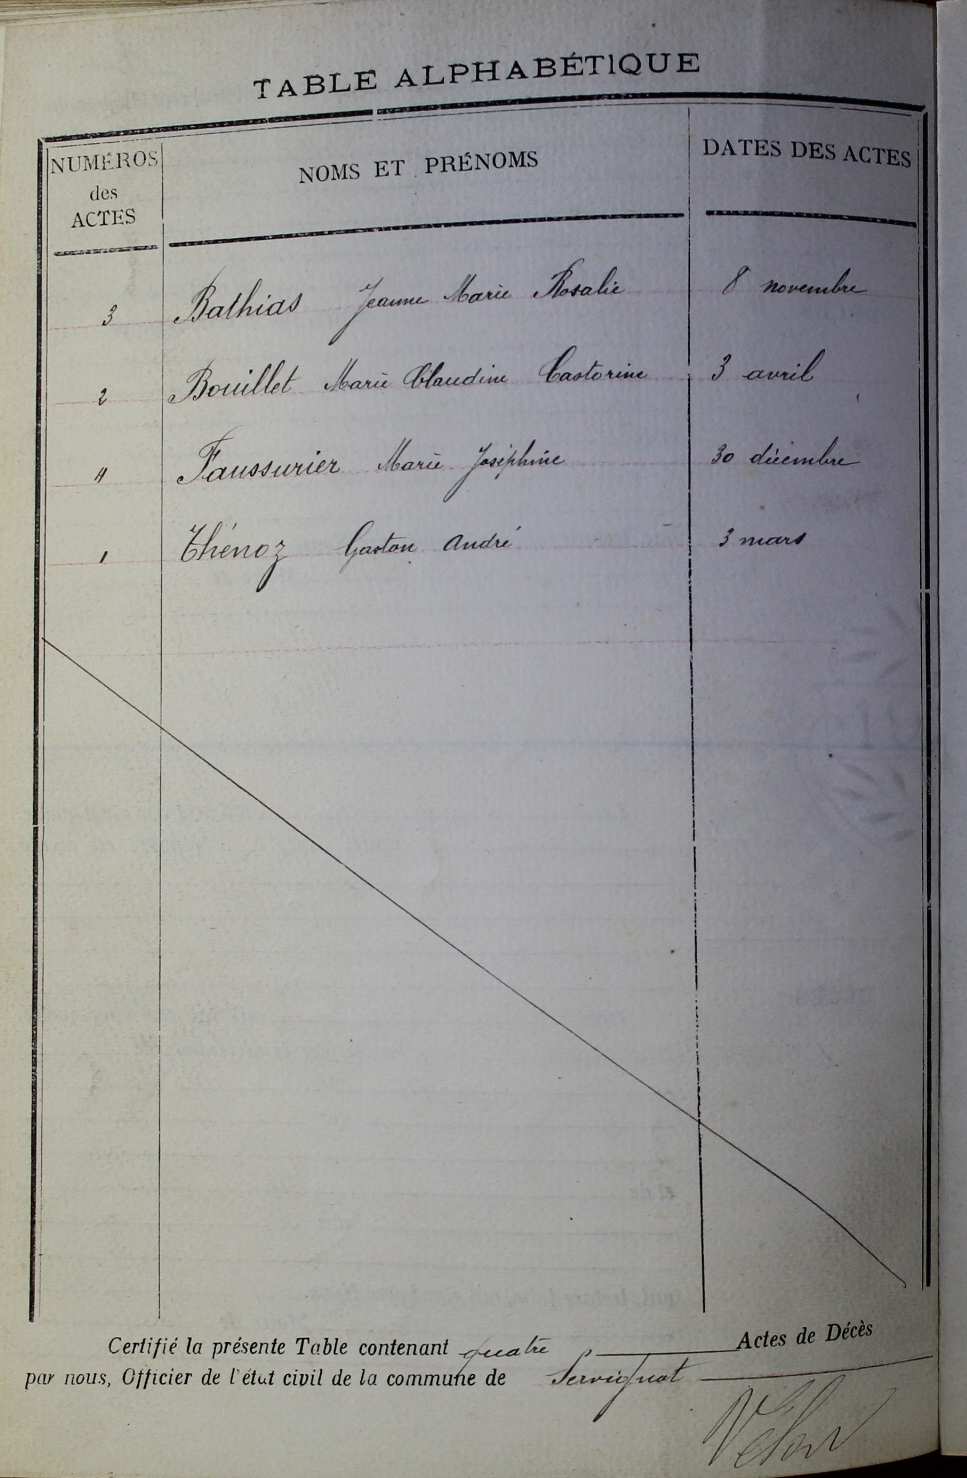 TABLE ALPHABÉTIQUE
NUMÉROS des ACTES NOMS ET PRÉNOMS DATES DES ACTES
3 Bathias Jeanne Marie Rosalie 8 novembre
2 Bouillet Marie Claudine Castorine 3 avril
4 Faussurier Marie Joséphine 30 décembre
1 Thénoz Gaston André 3 mars
Certifié la présente Table contenant quatre Actes de Décès
par nous, Officier de l'état civil de la commune de Servignat